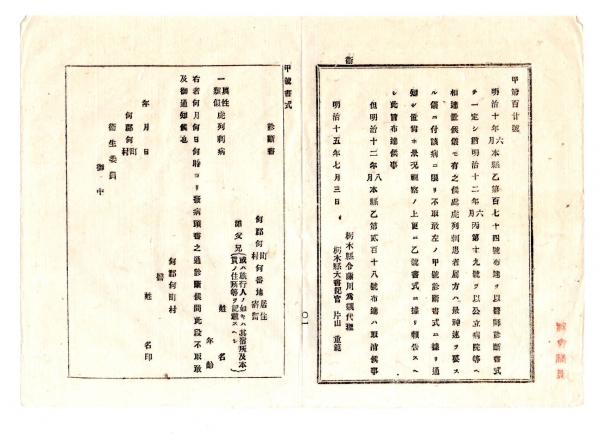 甲第百廿號
明治十年六月本縣乙第百七十四號布達ヲ以醫師診斷書式
ヲ一定シ猶明治十二年六月丙第十九號ヲ以公立病院等ヘ
相達置候儀モ有之候處虎列剌患者届方ハ最神速ヲ要ス
ル儀ニ付該病ニ限リ不取敢左ノ甲號診斷書式ニ據リ通
知シ置尚ホ景況視察ノ上更ニ乙號書式ニ據リ報告スヘ
シ此旨布達候事
但明治十二年八月本縣乙第貳百十八號布達ハ取消候事
明治十五年七月三日
栃木縣令藤川爲親代理
栃木縣大書記官 片山重範
衛
〇一
甲號書式
診斷書
何郡何町村何番地居住寄留
誰父兄(或ハ旅行人ノ如キハ其宿所及本貫ノ住所等ヲ記載スヘシ)
姓名
年齢
一眞性類似虎列剌病
右者何月何日何時ヨリ發病頭書之通診斷候間此段不取敢
及御通知候也
何郡何町村
醫
年月日
姓名印
何郡何町村
衞生委員
御中